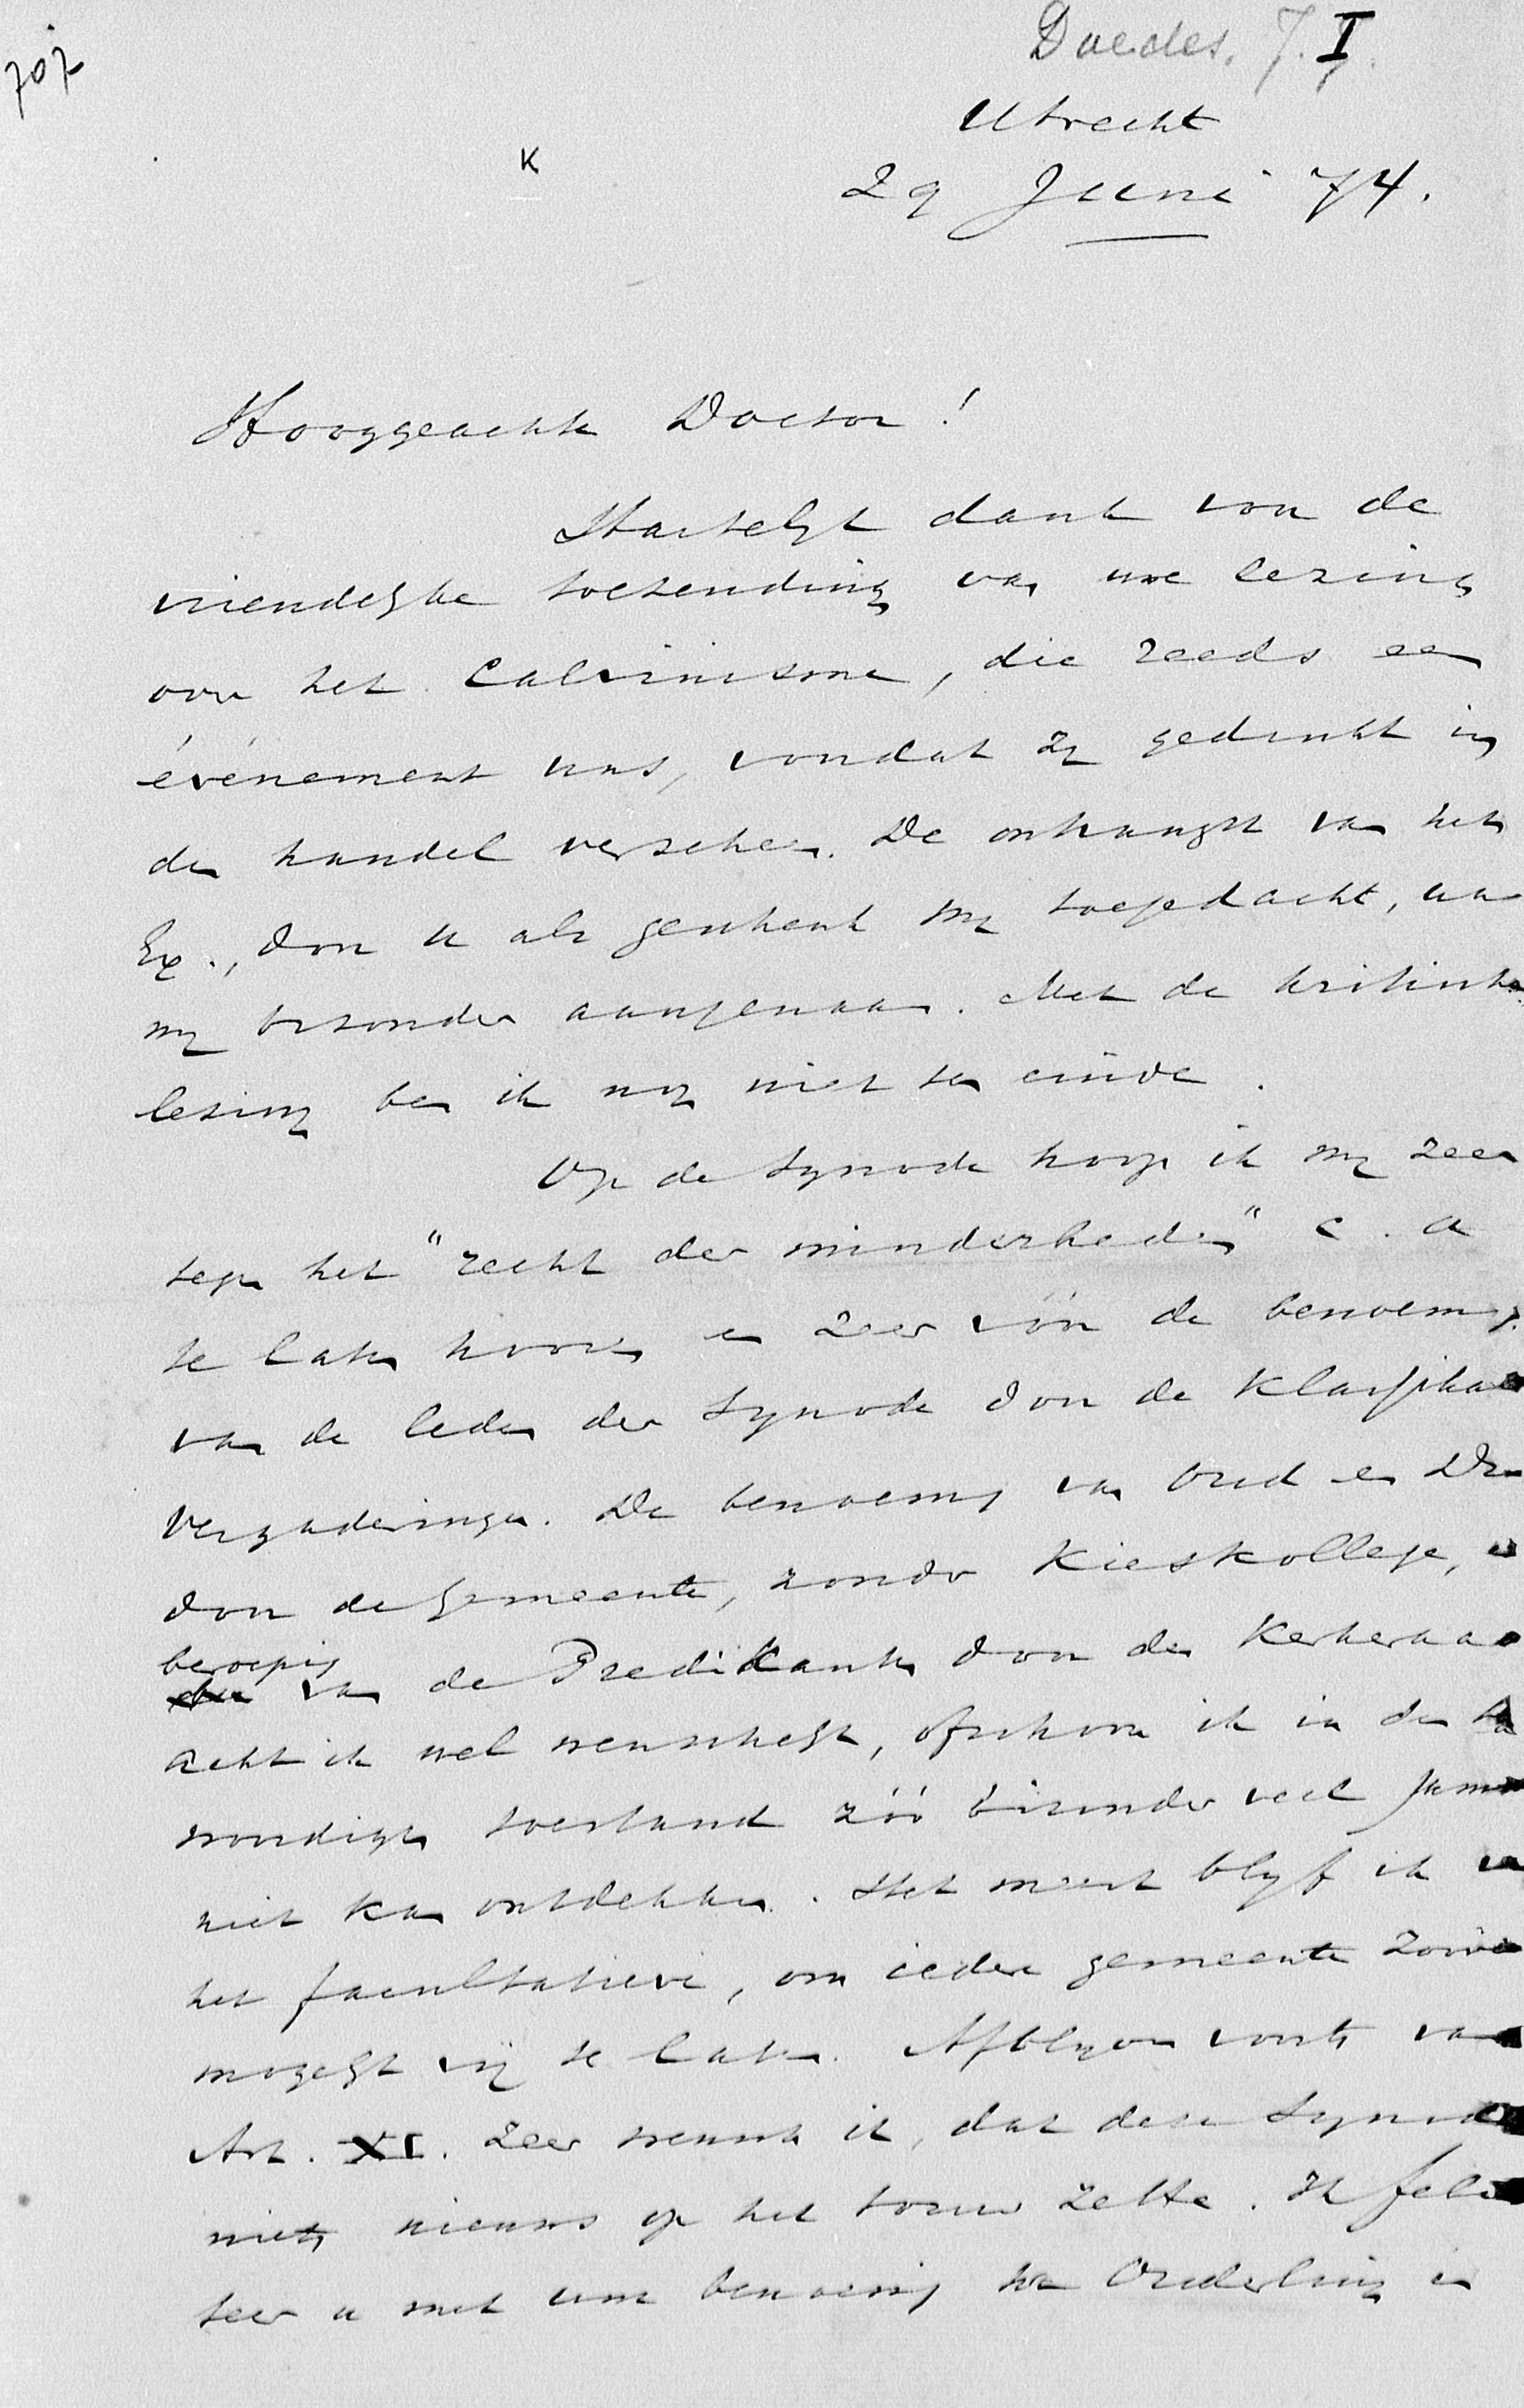 Doedes, J. I.
707
Utrecht
K
29 Juni 74.
Hooggeachte Doctor!
Hartelijk dank voor de
vriendelijke toezending van uwe lezing
over het Calvinisme, die reeds een
événement was, voordat zij gedrukt in
den handel verscheen. De ontvangst van het
Ex., door u als geschenk mij toegedacht, was
mij bizonder aangenaam. Met de kritische
lezing ben ik nog niet ten einde.
Op de Synode hoop ik mij zeer
tegen het "recht der minderheden" c. a
te laten hooren en zeer vóór de benoeming
van de leden der Synode door de Klassikale
Vergaderingen. De benoeming van Oud en Dia
door de Gemeente, zonder Kieskollege, en
beroeping van de Predikanten door den Kerkeraad
acht ik wel wenschelijk, ofschoon ik in den te
woordigen toestand zóó bizonder veel jammer
niet kan ontdekken. Het meest blijf ik voor
het facultatieve, om iedere gemeente zoovee
mogelijk vrij te laten. Afblijven voorts van
Art. XI. Zeer wensch ik, dat deze Synode
niets nieuws op het touw zette. Ik felici
teer u met uwe benoeming tot Ouderling in